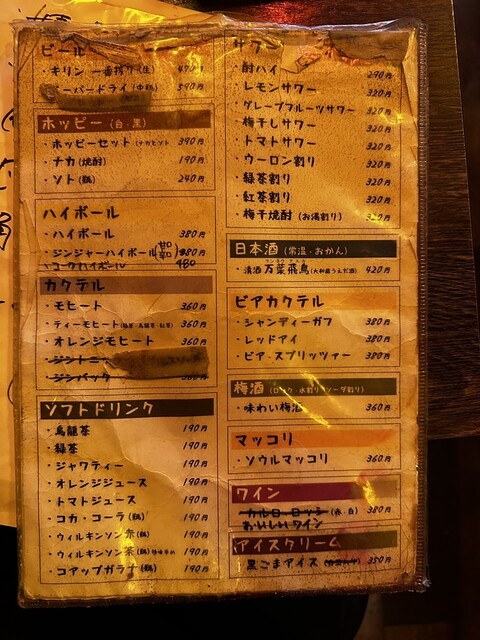 ビール
・キリン 一番搾り(生) 490円
ーパードライ(中瓶) 590円
ホッピー(白・黒)
・ホッピーセット(ナカとソト) 390円
・ナカ(焼酎) 190円
・ソト(瓶) 240円
ハイボール
・ハイボール 380円
・ジンジャーハイボール(甘口 辛口) 380円
・コークハイボール 480
カクテル
・モヒート 360円
・ティーモヒート(緑茶・烏龍茶・紅茶) 360円
・オレンジモヒート 360円
・ジントニ
・ジンバック
ソフトドリンク
・烏龍茶 190円
・緑茶 190円
・ジャワティー 190円
・オレンジジュース 190円
・トマトジュース 190円
・コカ・コーラ(瓶) 190円
・ウィルキンソン茶(瓶) 190円
・ウィルキンソン赤(瓶) 190円
・コアップガラナ(瓶) 190円
サワー
・酎ハイ 290円
・レモンサワー 320円
・グレープフルーツサワー 320円
・梅干しサワー 320円
・トマトサワー 320円
・ウーロン割り 320円
・緑茶割り 320円
・紅茶割り 320円
・梅干焼酎(お湯割り) 320円
日本酒(常温・おかん)
・清酒 万葉飛鳥 420円
ビアカクテル
・シャンディーガフ 380円
・レッドアイ 380円
・ビア・スプリッツァー 380円
梅酒(ロック・水割り・ソーダ割り)
・味わい梅酒 360円
マッコリ
・ソウルマッコリ 360円
ワイン
・カルロ・ロッシ(赤・白) 380円
おいしいワイン
アイスクリーム
・黒ごまアイス 350円